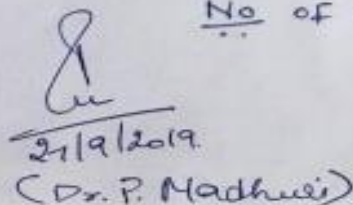 No of
21/9/2019
(Dr. P. Madhuri)